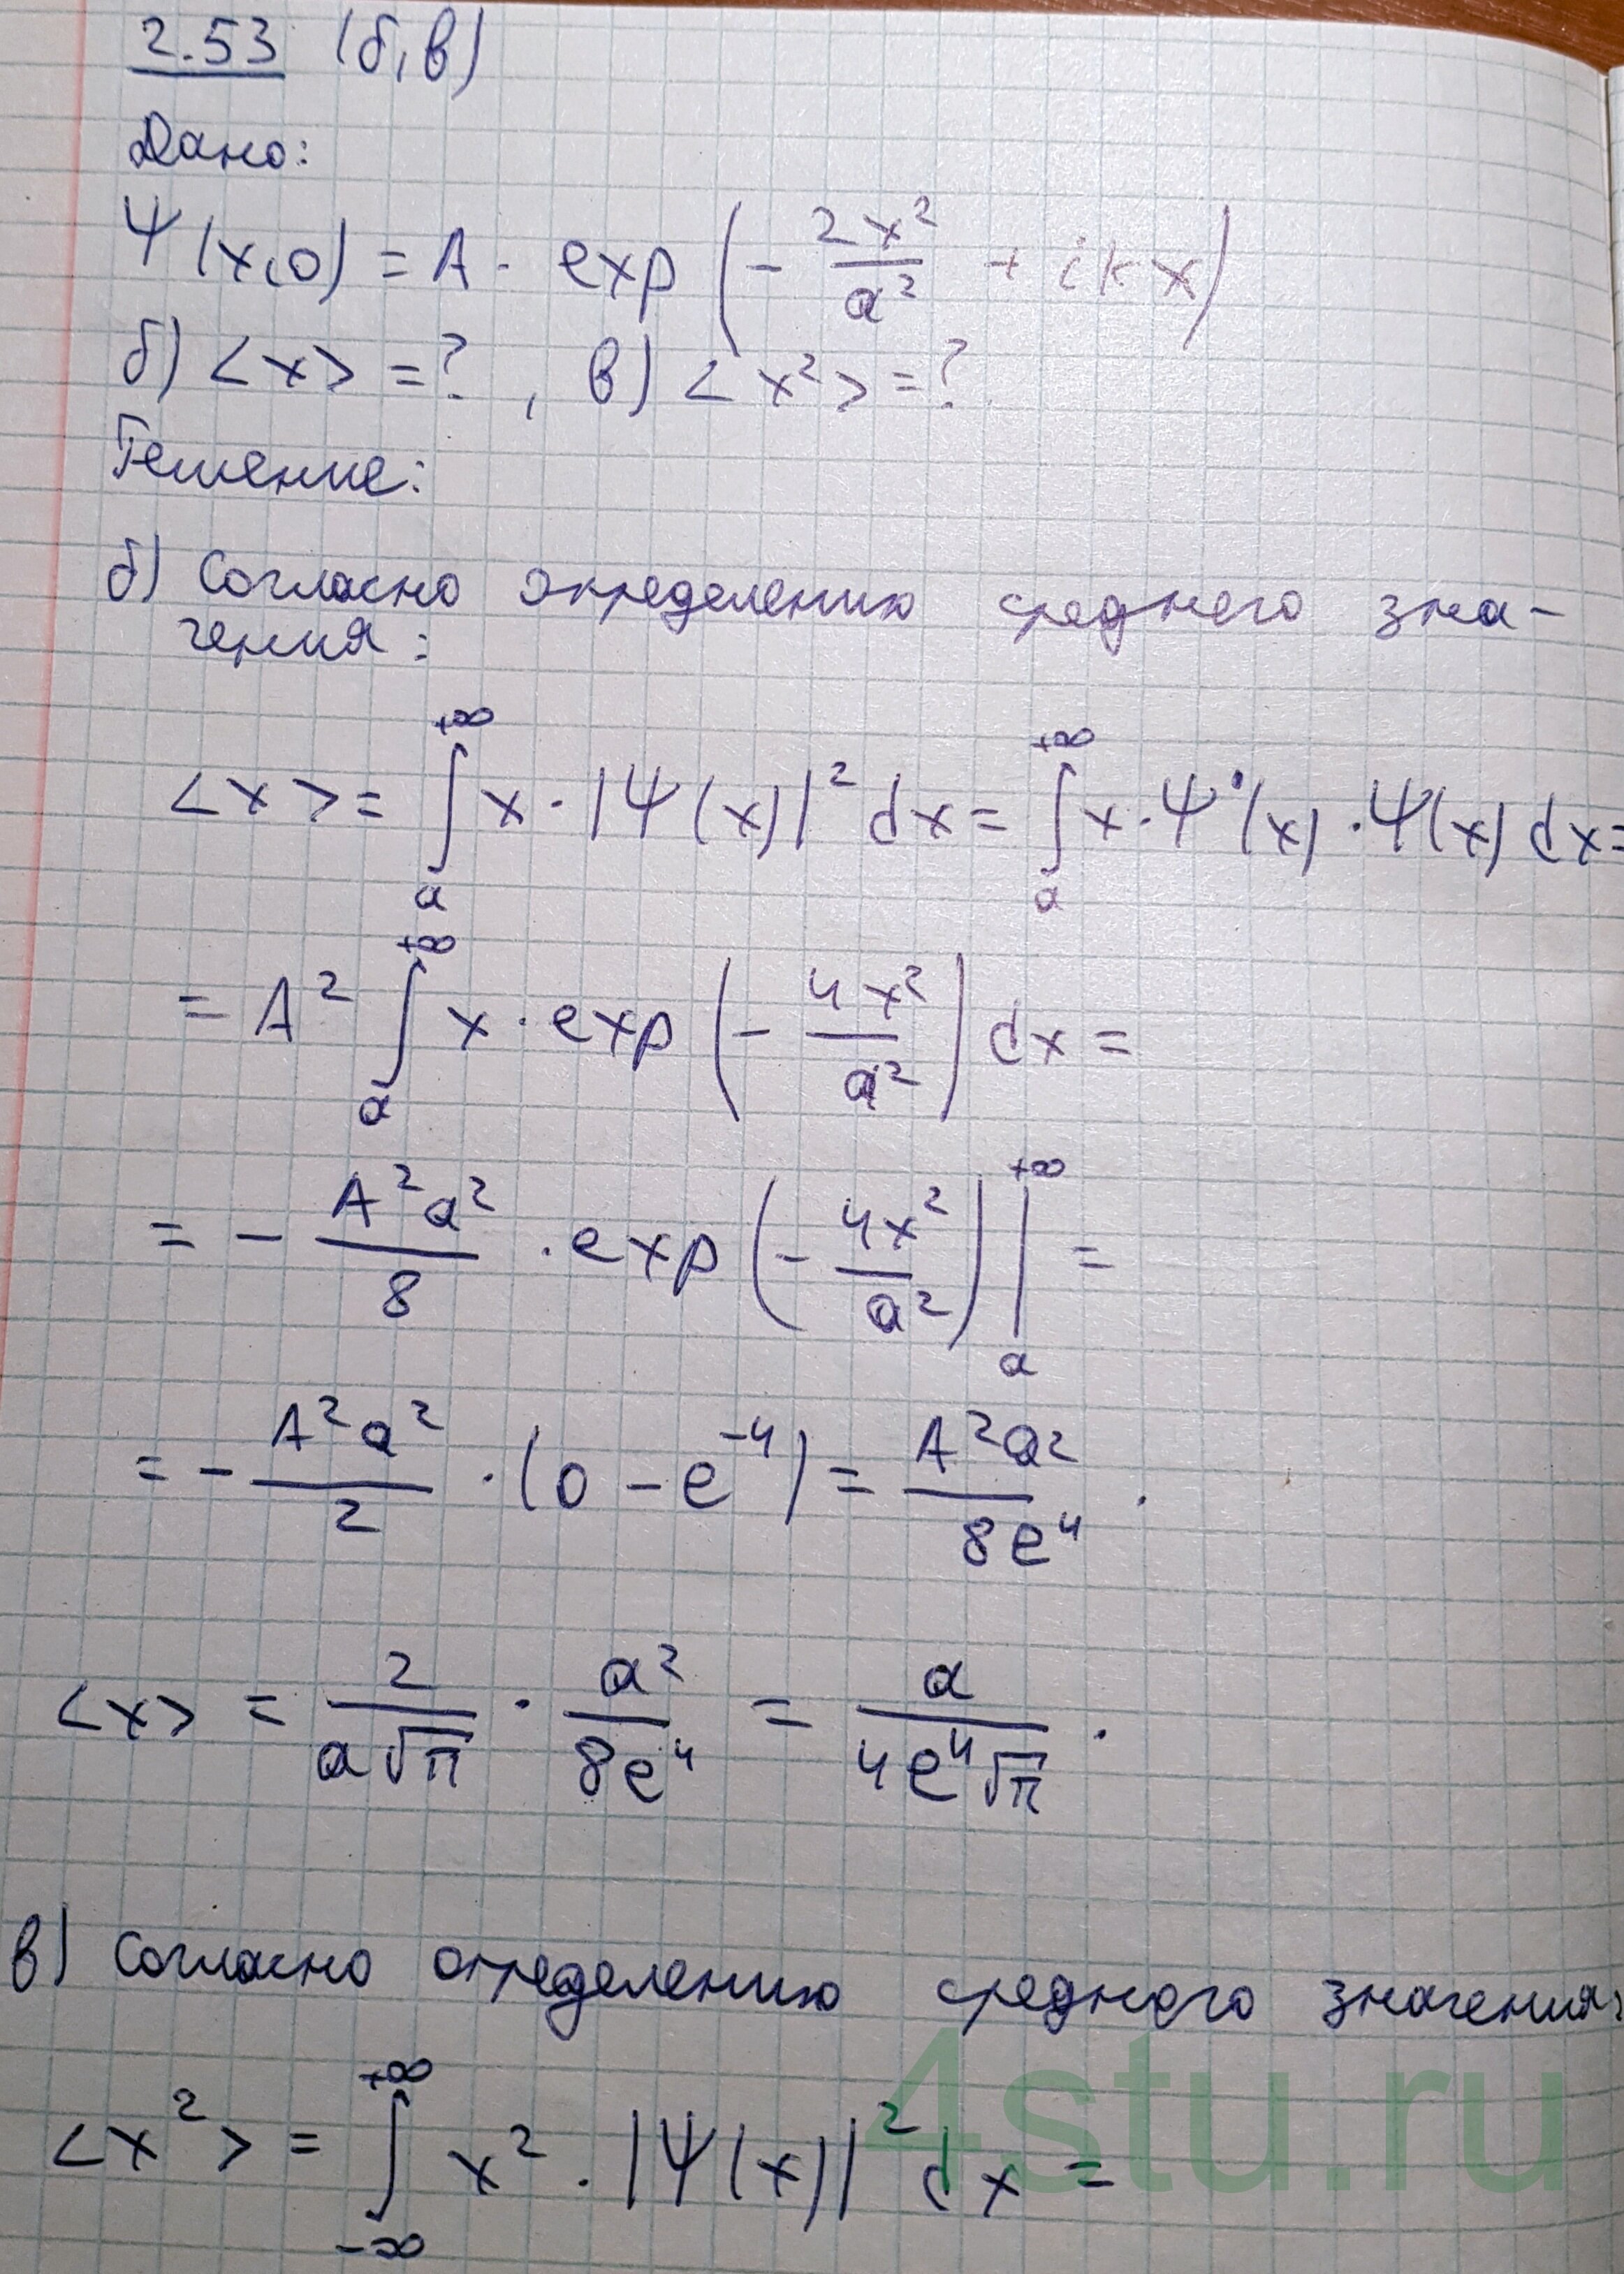 2.53 (б, в)
Дано:
Ψ(x,0) = A · exp(−2x²/a² + ikx)
б) <x> = ? , в) <x²> = ?
Решение:
б) Согласно определению среднего зна-
чения:
<x> = ∫ₐ^{+∞} x · |Ψ(x)|² dx = ∫ₐ^{+∞} x · Ψ*(x) · Ψ(x) dx =
= A² ∫ₐ^{+∞} x · exp(−4x²/a²) dx =
= − A²a²/8 · exp(−4x²/a²) |ₐ^{+∞} =
= − A²a²/2 · (0 − e⁻⁴) = A²a²/8e⁴ .
<x> = 2/a√π · a²/8e⁴ = a/4e⁴√π .
в) Согласно определению среднего значения:
<x²> = ∫_{−∞}^{+∞} x² · |Ψ(x)|² dx =
4stu.ru